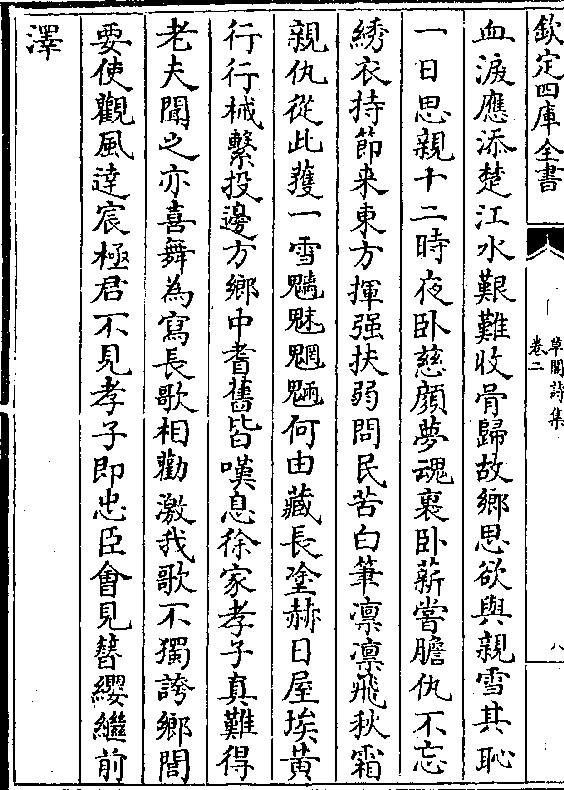 欽定四庫全書
草閣詩集
卷二
八
血淚應添楚江水艱難收骨歸故鄉思欲與親雪其恥
一日思親十二時夜卧慈顔夢魂裏卧薪嘗膽仇不忘
綉衣持節来東方揮强扶弱問民苦白筆凛凛飛秋霜
親仇從此獲一雪魑魅魍魎何由藏長塗赫日屋埃黄
行行械繫投邊方鄉中耆舊皆嘆息徐家孝子真難得
老夫聞之亦喜舞為寫長歌相勸激我歌不獨誇鄉閭
要使觀風達宸極君不見孝子即忠臣會見簪纓繼前
澤